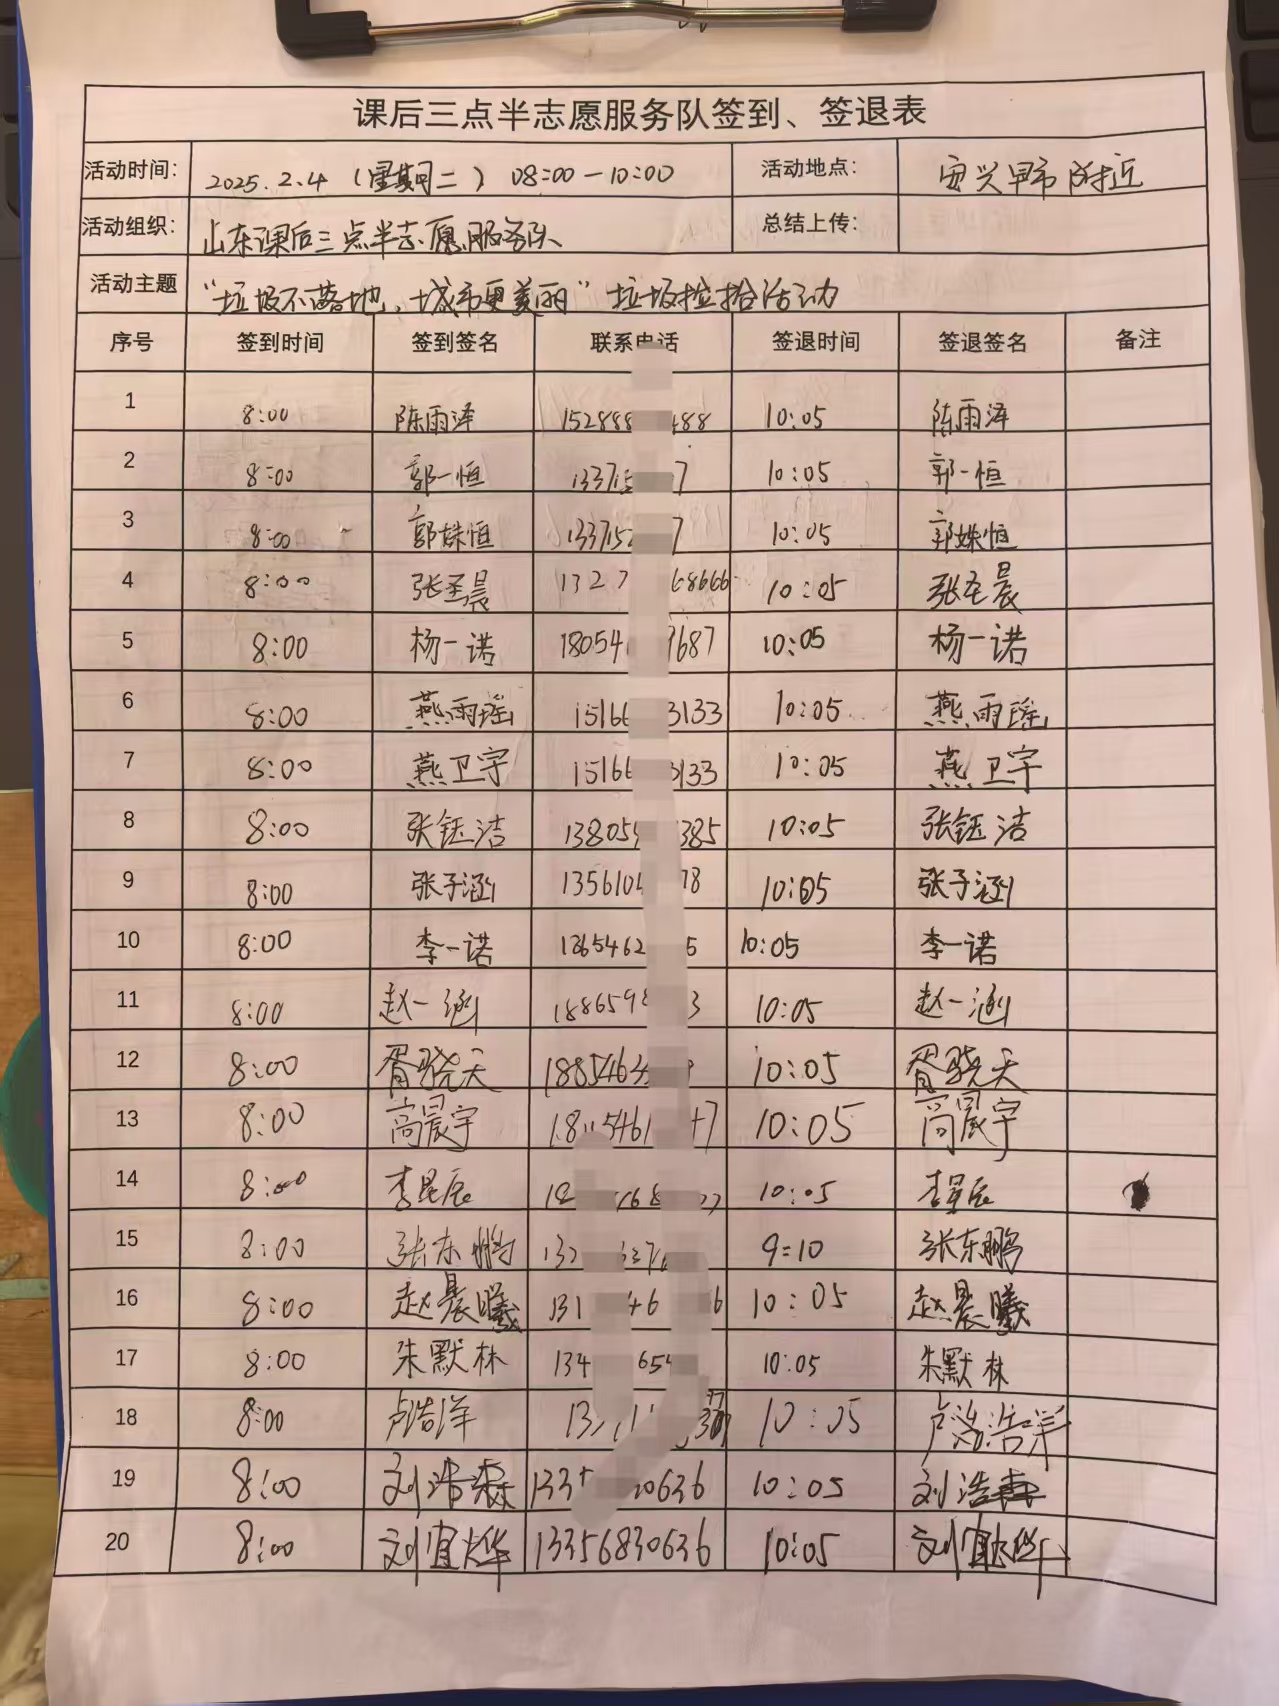 课后三点半志愿服务队签到、签退表
活动时间: 2025.2.4 (星期二) 08:00-10:00 活动地点: 安兴早市附近
活动组织: 山东课后三点半志愿服务队 总结上传:
活动主题 "垃圾不落地,城市更美丽"垃圾捡拾活动
序号 签到时间 签到签名 联系电话 签退时间 签退签名 备注
1 8:00 陈雨泽 15288 488 10:05 陈雨泽
2 8:00 郭一恒 13371 7 10:05 郭一恒
3 8:00 郭姝恒 133715 7 10:05 郭姝恒
4 8:00 张圣晨 1327 68666 10:05 张圣晨
5 8:00 杨一诺 18054 687 10:05 杨一诺
6 8:00 燕雨瑶 1516 3133 10:05 燕雨瑶
7 8:00 燕卫宇 1516 3133 10:05 燕卫宇
8 8:00 张钰洁 13805 385 10:05 张钰洁
9 8:00 张子涵 135610 78 10:05 张子涵
10 8:00 李一诺 1365462 5 10:05 李一诺
11 8:00 赵一涵 186598 3 10:05 赵一涵
12 8:00 胥骁天 1885463 10:05 胥骁天
13 8:00 高晨宇 5461 47 10:05 高晨宇
14 8:00 李星辰 68 10:05 李星辰
15 8:00 张东鹏 132 9:10 张东鹏
16 8:00 赵晨曦 131 46 6 10:05 赵晨曦
17 8:00 朱默林 134 654 10:05 朱默林
18 8:00 卢浩洋 13 10:05 卢浩洋
19 8:00 刘浩 133 0636 10:05 刘浩
20 8:00 刘宜烨 13356830636 10:05 刘宜烨